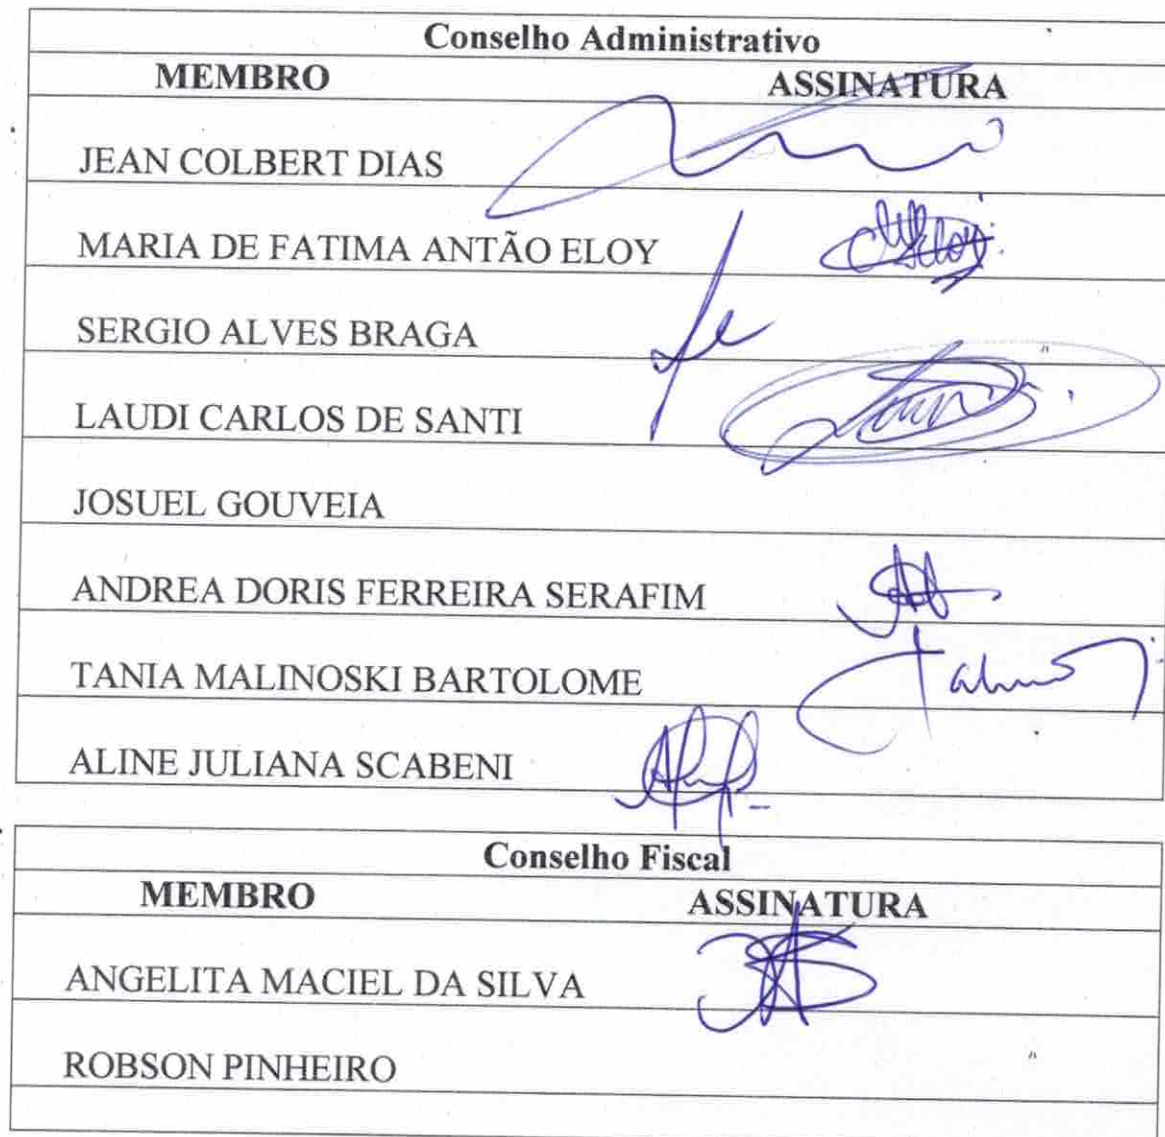 Conselho Administrativo
MEMBRO ASSINATURA
JEAN COLBERT DIAS
MARIA DE FATIMA ANTÃO ELOY
SERGIO ALVES BRAGA
LAUDI CARLOS DE SANTI
JOSUEL GOUVEIA
ANDREA DORIS FERREIRA SERAFIM
TANIA MALINOSKI BARTOLOME
ALINE JULIANA SCABENI
Conselho Fiscal
MEMBRO ASSINATURA
ANGELITA MACIEL DA SILVA
ROBSON PINHEIRO